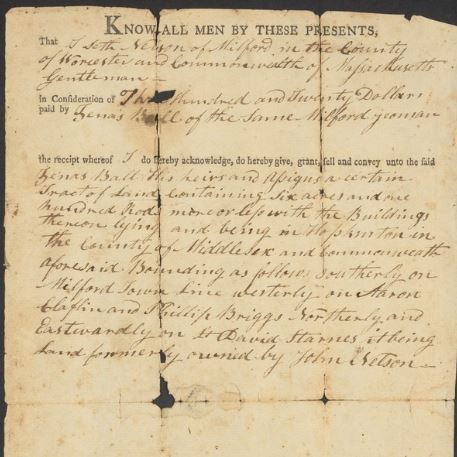 KNOW ALL MEN BY THESE PRESENTS,
That I Seth Nelson of Milford in the County
of Worcester and Commonwealth of Massachusetts
Gentleman —
In Consideration of Hundred and Twenty Dollars
paid by Zenas Ball of the Same Milford yeoman
the receipt whereof I do hereby acknowledge, do hereby give, grant, sell and convey unto the said
Zenas Ball His heirs and Assigns a certain
Tract of Land Containing Six acres and one
hundred Rods more or less with the Buildings
thereon lying and being in Hopkinton in
the County of Middlesex and Commonwealth
aforesaid Bounding as follows Southerly on
Milford Town Line westerly on Aaron
Claflin and Phillip Briggs Northerly and
Eastwardly on Lt David Starnes it being
Land formerly owned by John Nelson —